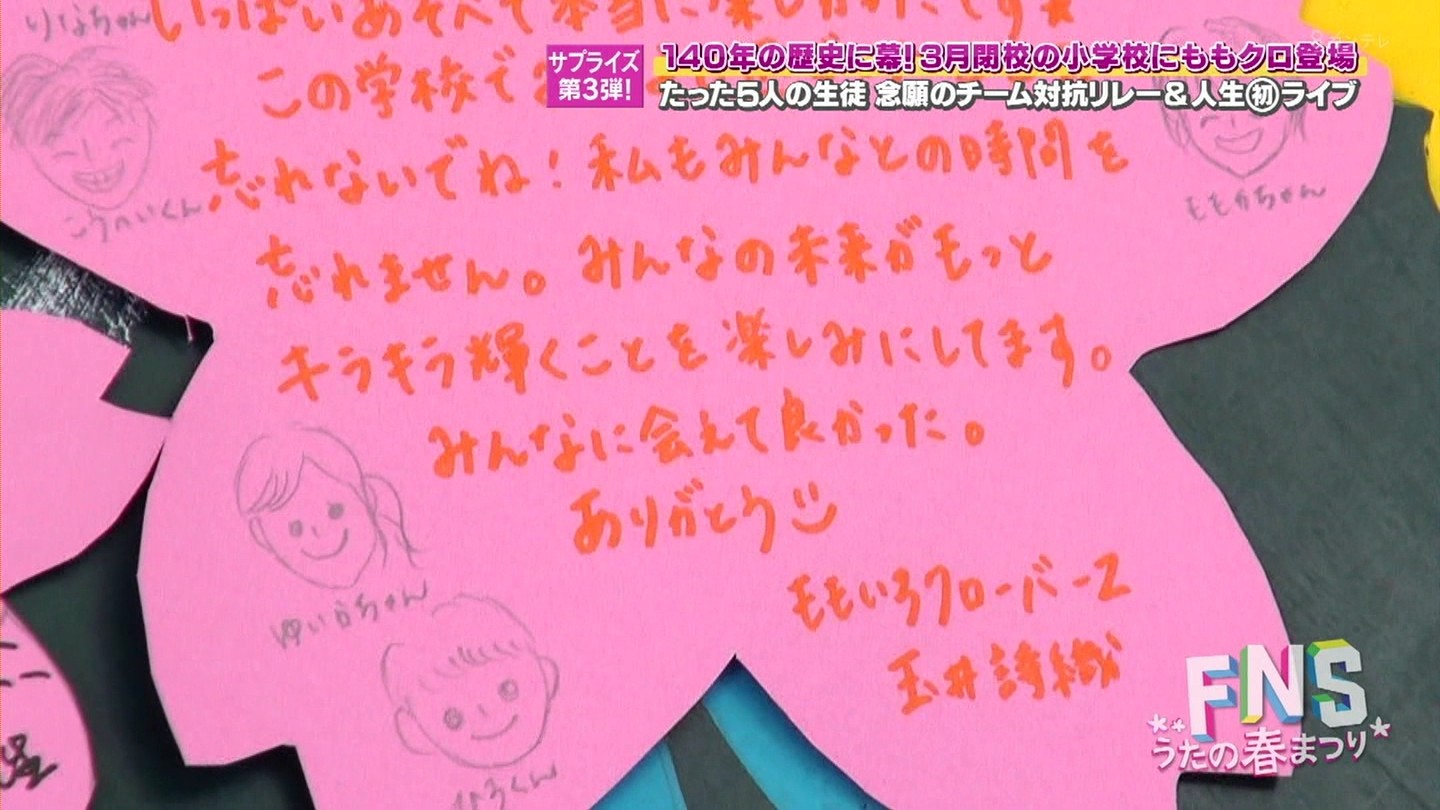 りなちゃん
いっぱいあそべて本当に楽しかったです★
サプライズ
第3弾!
140年の歴史に幕!3月閉校の小学校にももクロ登場
たった5人の生徒 念願のチーム対抗リレー&人生初ライブ
この学校で
忘れないでね!私もみんなとの時間を
こうへいくん
ももかちゃん
忘れません。みんなの未来がもっと
キラキラ輝くことを楽しみにしてます。
みんなに会えて良かった。
ありがとう
ゆいかちゃん
ももいろクローバーZ
玉井詩織
ひろくん
FNS
うたの春まつり